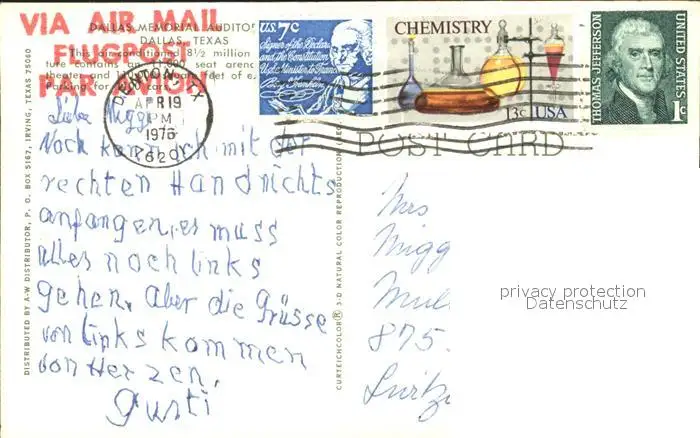 VIA AIR MAIL
FLUGPOST
PAR AVION
DALLAS MEMORIAL AUDITO
DALLAS, TEXAS
This air-conditioned 8½ million
ture contains an 11,000 seat arena
theater and
Parking for cars.
DENTON, TX
APR 19
PM
1976
76201
US 7c
Signer of the Declara-
and the Constitution
Benj. Franklin
CHEMISTRY
13c USA
THOMAS JEFFERSON
UNITED STATES
1c
POST CARD
Liebe Miggi
Noch kann ich mit der
rechten Hand nichts
anfangen, es muss
alles noch links
gehen. Aber die Grüsse
von links kommen
von Herzen.
Gusti
Mrs
Migg
Mul
875.
DISTRIBUTED BY A-W DISTRIBUTOR, P. O. BOX 5167, IRVING, TEXAS 75060
CURTEICHCOLOR® 3-D NATURAL COLOR REPRODUCTION
privacy protection
Datenschutz